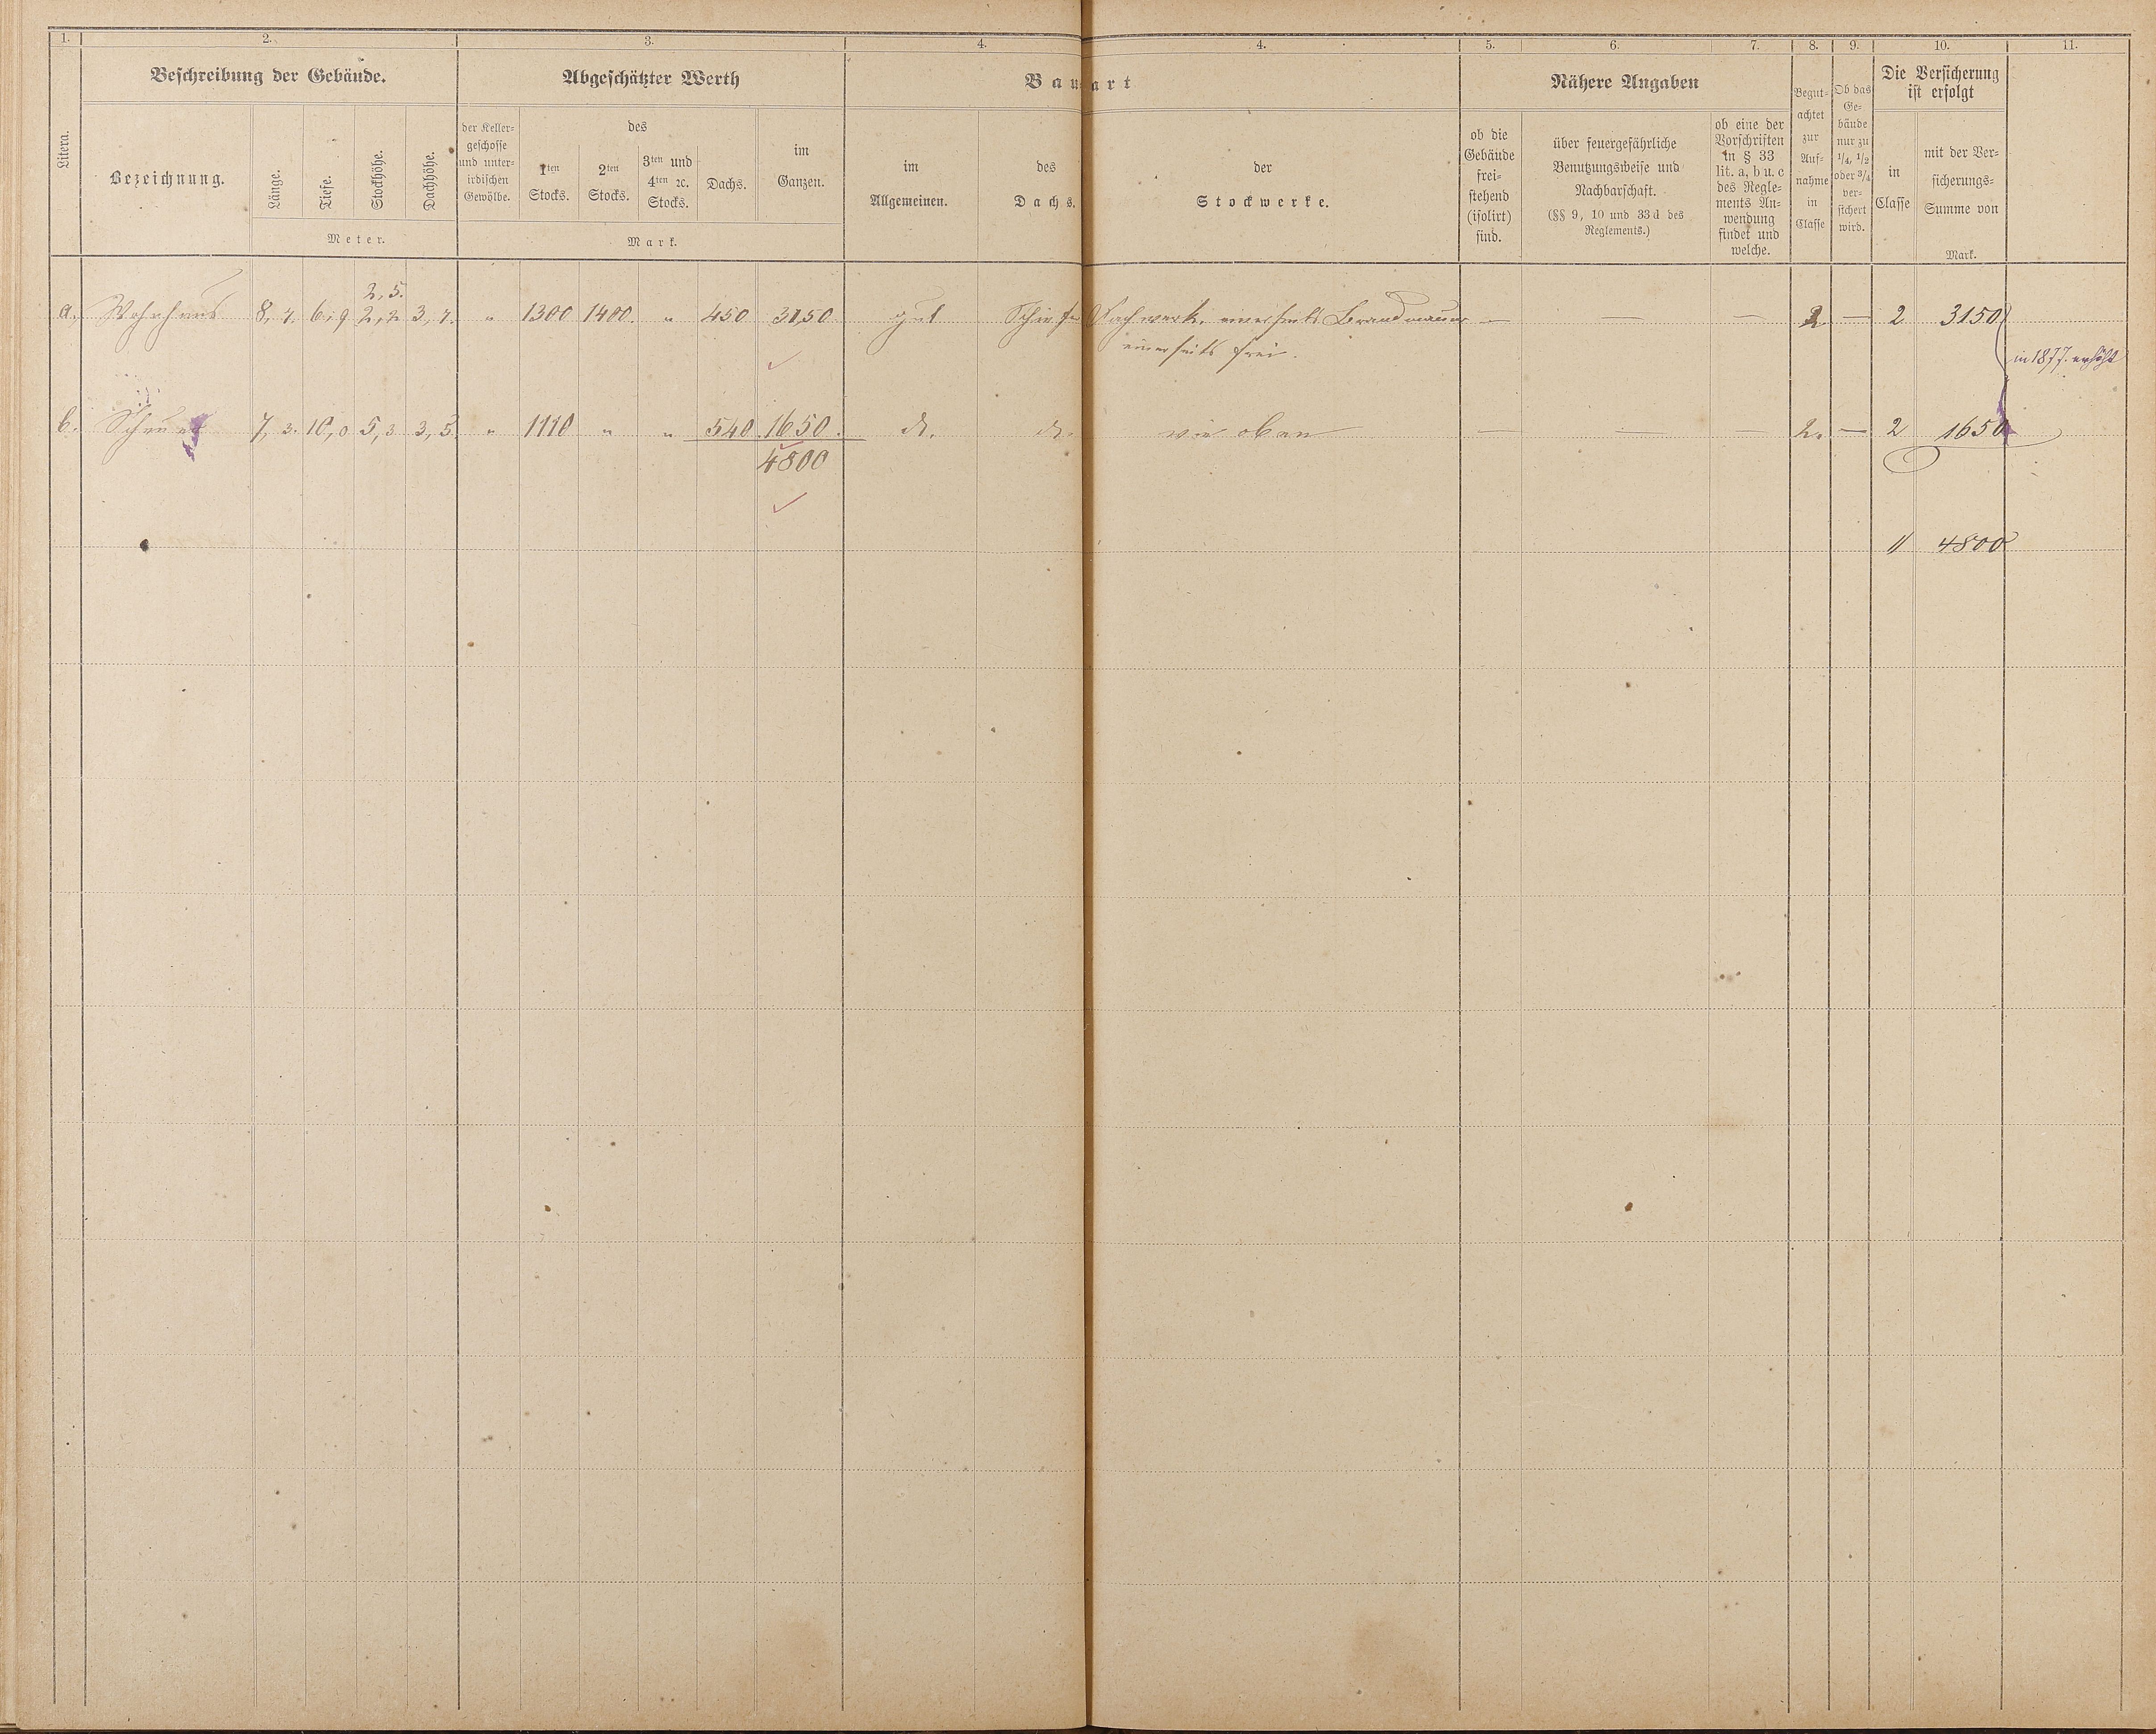 1. 2. 3. 4. 4. 5. 6. 7. 8. 9. 10. 11.
Beschreibung der Gebäude.
Abgeschätzter Werth
Bauart
Nähere Angaben
Die Versicherung
ist erfolgt
Litera.
Bezeichnung.
Länge.
Tiefe.
Stockhöhe.
Dachhöhe.
Meter.
der Keller-
geschosse
und unter-
irdischen
Gewölbe.
des
1ten
Stocks.
2ten
Stocks.
3ten und
4ten ꝛc.
Stocks.
Dachs.
im
Ganzen.
Mark.
im
Allgemeinen.
des
Dachs.
der
Stockwerke.
ob die
Gebäude
frei-
stehend
(isolirt)
sind.
über feuergefährliche
Benutzungsweise und
Nachbarschaft.
(§§ 9, 10 und 33d des
Reglements.)
ob eine der
Vorschriften
in § 33
lit. a, b u. c
des Regle-
ments An-
wendung
findet und
welche.
Begut-
achtet
zur
Auf-
nahme
in
Classe
Ob das
Ge-
bäude
nur zu
1/4, 1/2
oder 3/4
ver-
sichert
wird.
in
Classe
mit der Ver-
sicherungs-
Summe von
Mark.
2,5.
a. Wohnhaus 8,4. 6,9 2,2 3,4. " 1300 1400. " 450 3150 gut Fachwerk, einerseits Brandmauer — — — 2 — 2 3150
einerseits frei.
in 1877. erhöht
b. 7,3. 10,0 5,3 3,5. " 1110 " " 540 1650. do. do. wie oben — — — 2. — 2 1650
4800
4800